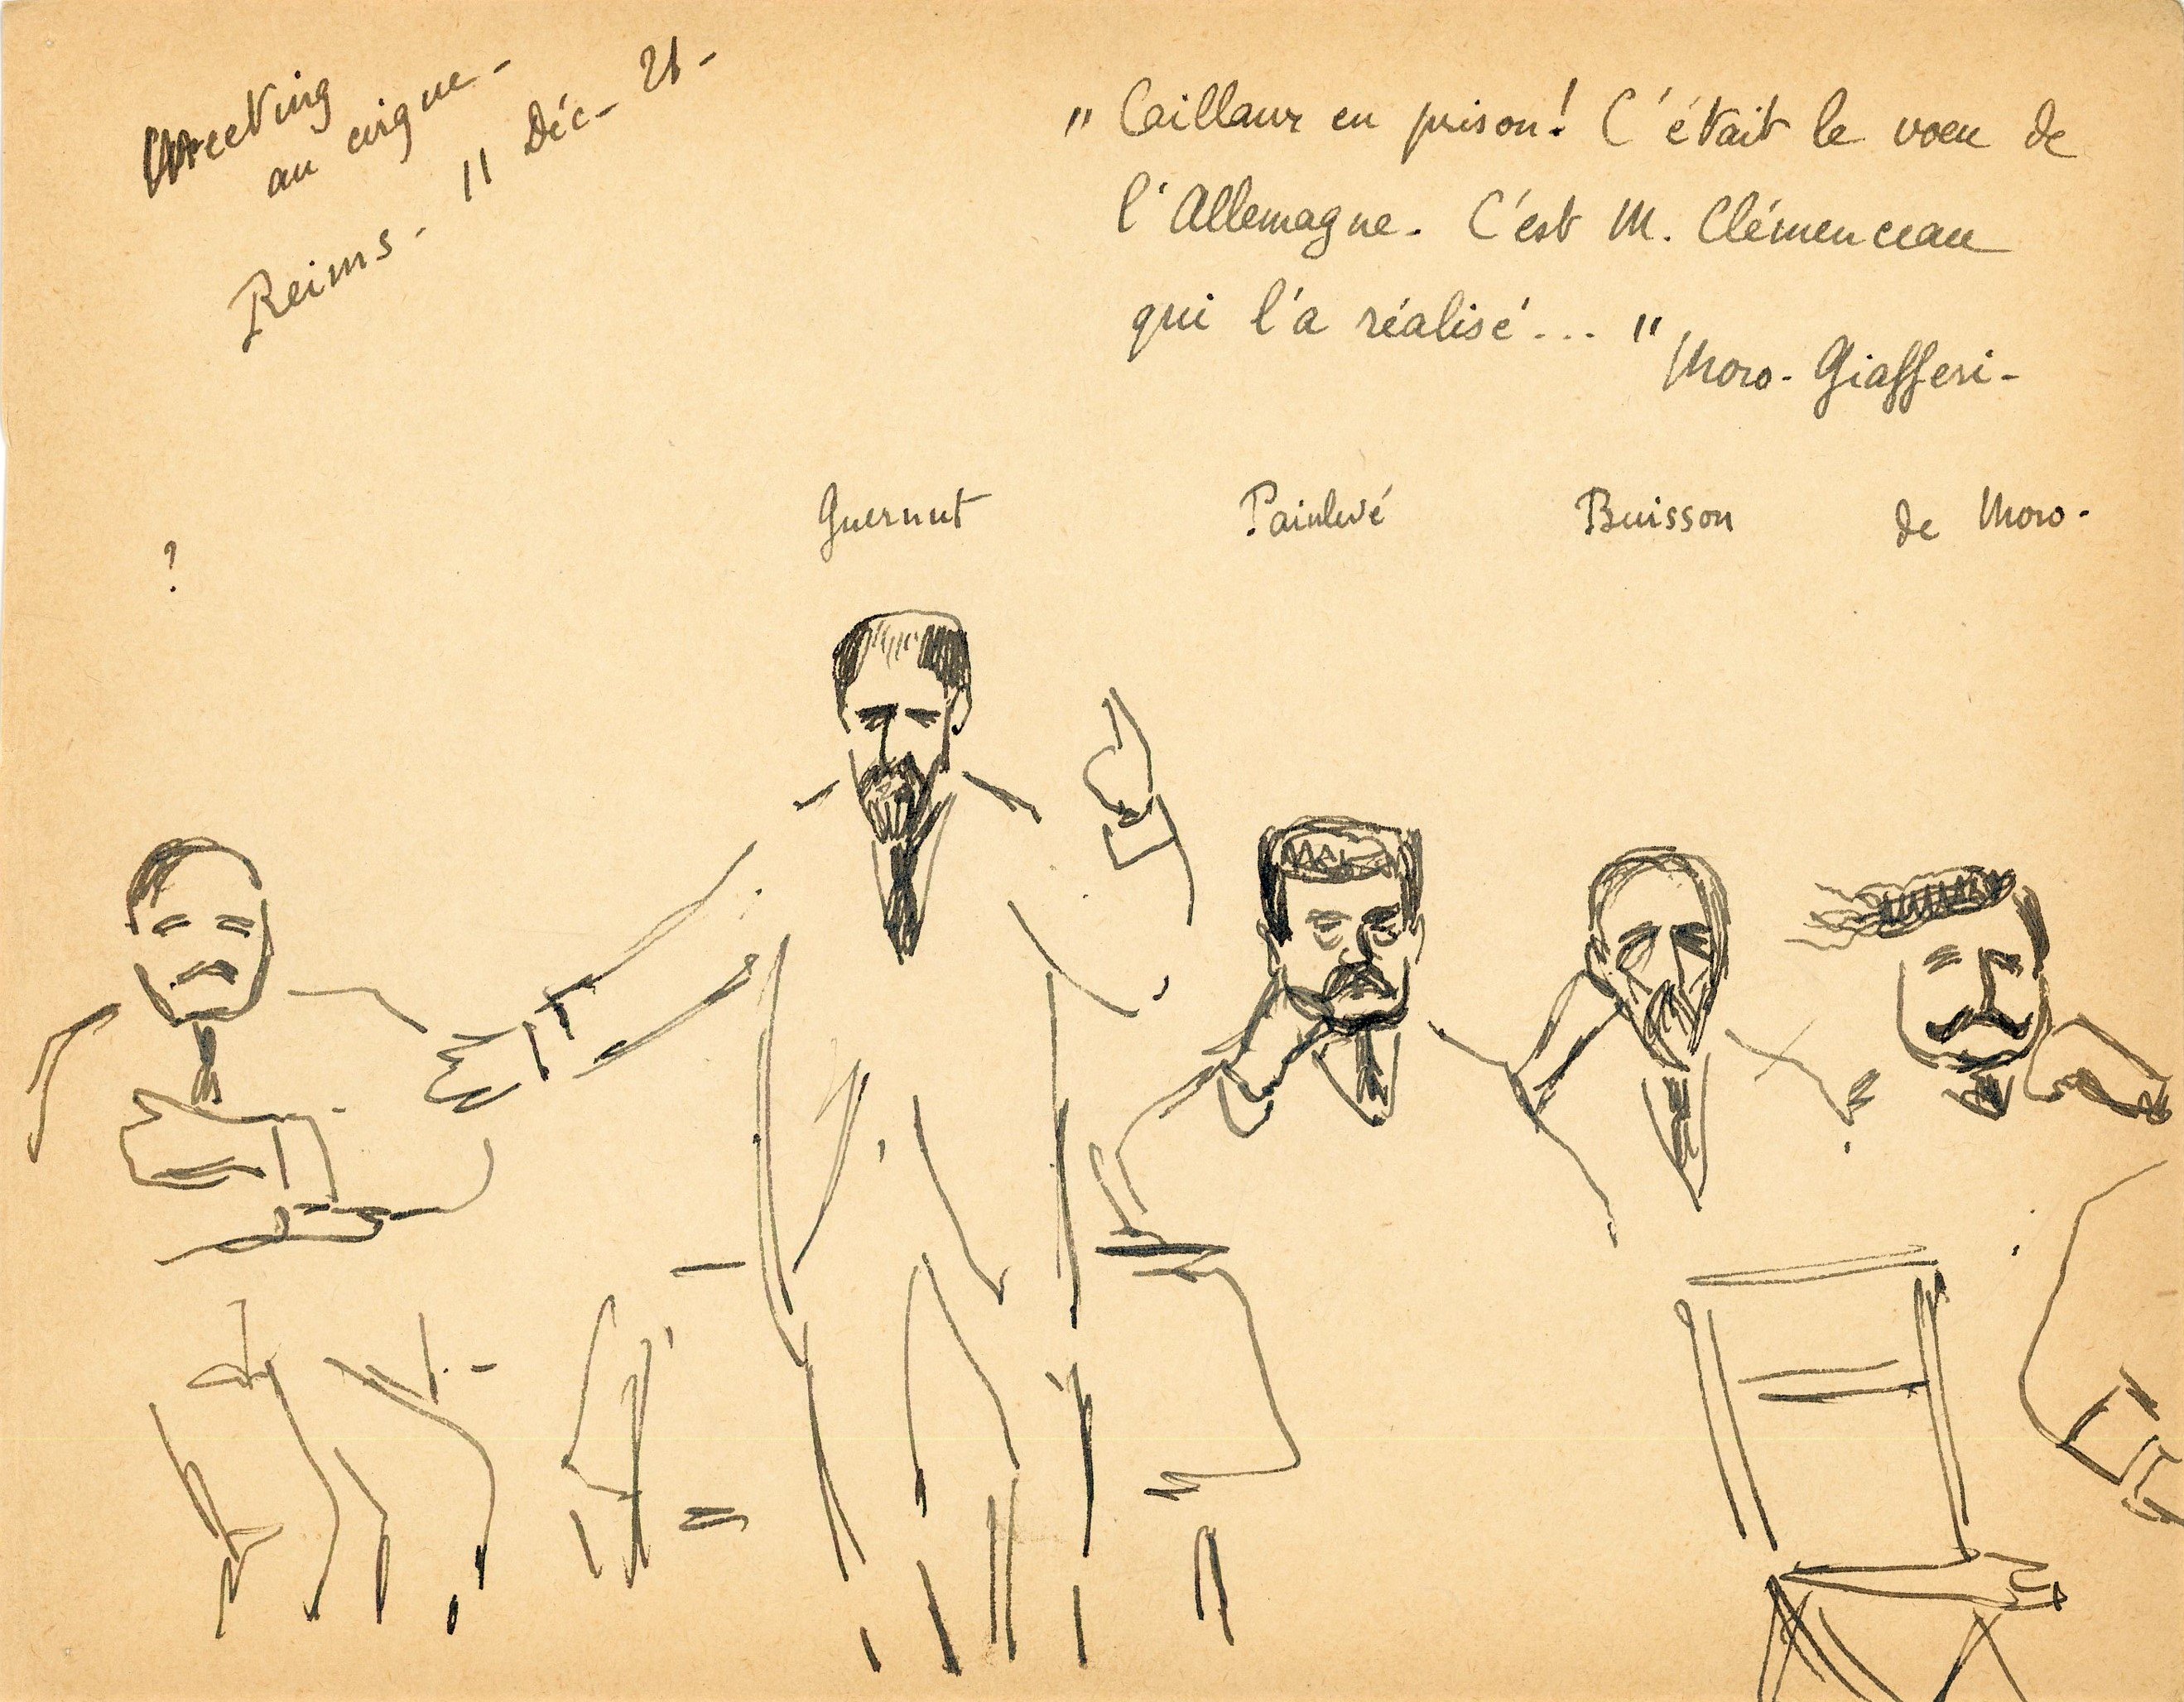 Meeting
au cirque -
Reims - 11 Déc - 21 -
" Caillaux en prison! C'était le voeu de
l'Allemagne. C'est M. Clémenceau
qui l'a réalisé... "
Moro-Giafferi -
?
Guernut
Painlevé
Buisson
de Moro -